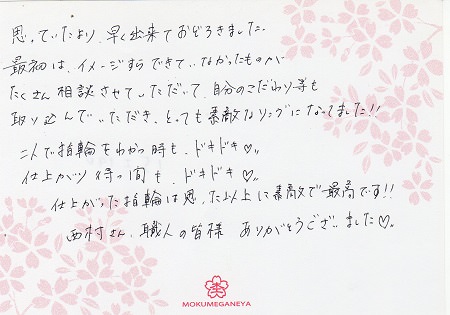 思っていたより、早く出来ておどろきました。
最初は、イメージすらできていなかったものが
たくさん相談させていただいて、自分のこだわり等も
取り込んでいただき、とっても素敵なリングになってました!!
二人で指輪をわかつ時も、ドキドキ♡。
仕上がり待つ間も、ドキドキ♡。
仕上がった指輪は思った以上に素敵で最高です!!
西村さん、職人の皆様 ありがとうございました♡。
MOKUMEGANEYA